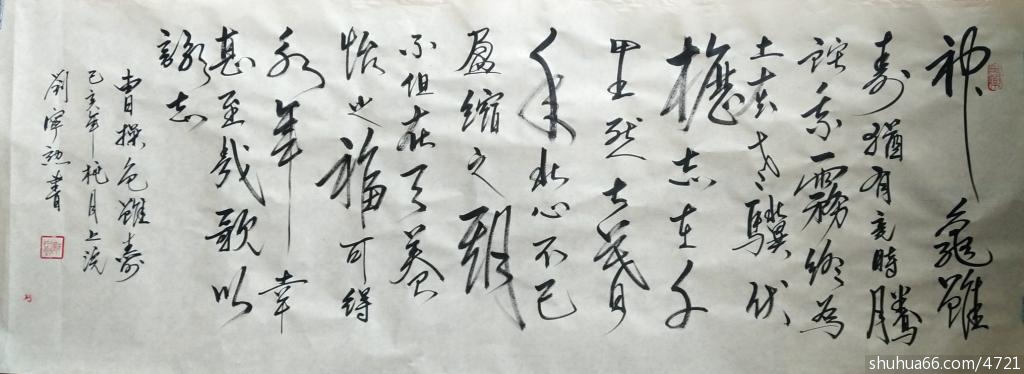 神龜雖
壽猶有竟時騰
蛇乘霧終為
土灰老驥伏
櫪志在千
里烈士暮
年壯心不已
盈縮之期
不但在天養
怡之福可得
永年幸
甚至哉歌以
詠志
曹操龜雖壽
己亥年桃月上浣
書
shuhua66.com/4721